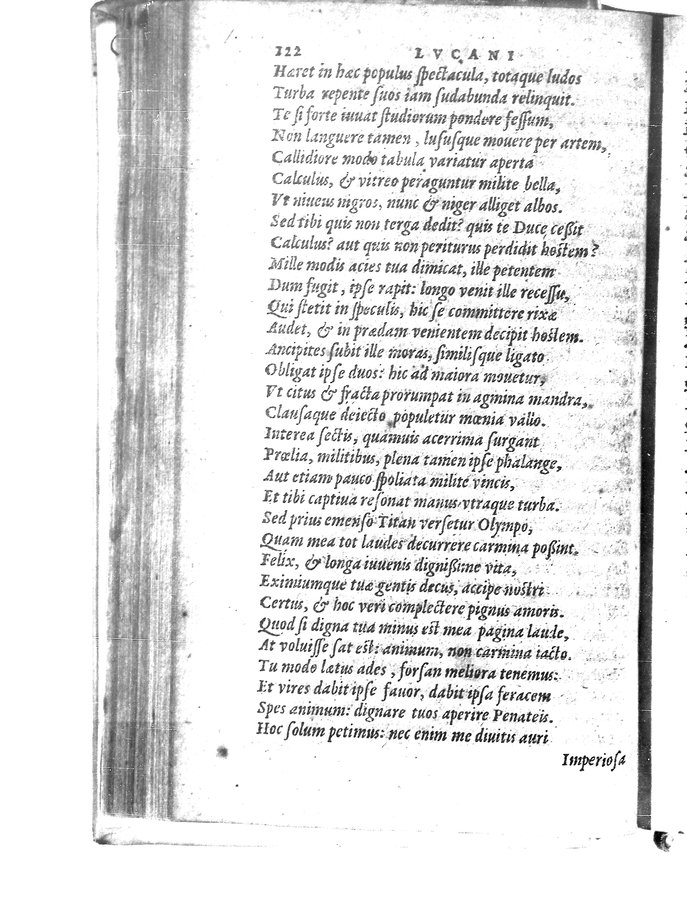 122 LVCANI
Hæret in hæc populus ſpectacula, totaque ludos
Turba repente ſuos iam ſudabunda relinquit.
Te ſi forte iuuat ſtudiorum pondere feſſum,
Non languere tamen, luſuſque mouere per artem,
Callidiore modo tabula variatur aperta
Calculus, & vitreo peraguntur milite bella,
Vt niueus nigros, nunc & niger alliget albos.
Sed tibi quis non terga dedit? quis te Duce ceßit
Calculus? aut quis non periturus perdidit hoſtem?
Mille modis acies tua dimicat, ille petentem
Dum fugit, ipſe rapit: longo venit ille receſſu,
Qui ſtetit in ſpeculis, hic ſe committere rixæ
Audet, & in prædam venientem decipit hoſtem.
Ancipites ſubit ille moras, ſimiliſque ligato
Obligat ipſe duos: hic ad maiora mouetur,
Vt citus & fracta prorumpat in agmina mandra,
Clauſaque deiecto populetur mœnia vallo.
Interea ſectis, quamuis acerrima ſurgant
Prælia, militibus, plena tamen ipſe phalange,
Aut etiam pauco ſpoliata milite vincis,
Et tibi captiua reſonat manus vtraque turba.
Sed prius emenſo Titan verſetur Olympo,
Quam mea tot laudes decurrere carmina poßint.
Felix, & longa iuuenis digniſsime vita,
Eximiumque tuæ gentis decus, accipe noſtri
Certus, & hoc veri complectere pignus amoris.
Quod ſi digna tua minus eſt mea pagina laude,
At voluiſſe ſat eſt: animum, non carmina iacto.
Tu modo lætus ades, forſan meliora tenemus:
Et vires dabit ipſe fauor, dabit ipſa feracem
Spes animum: dignare tuos aperire Penateis.
Hoc ſolum petimus: nec enim me diuitis auri
Imperioſa